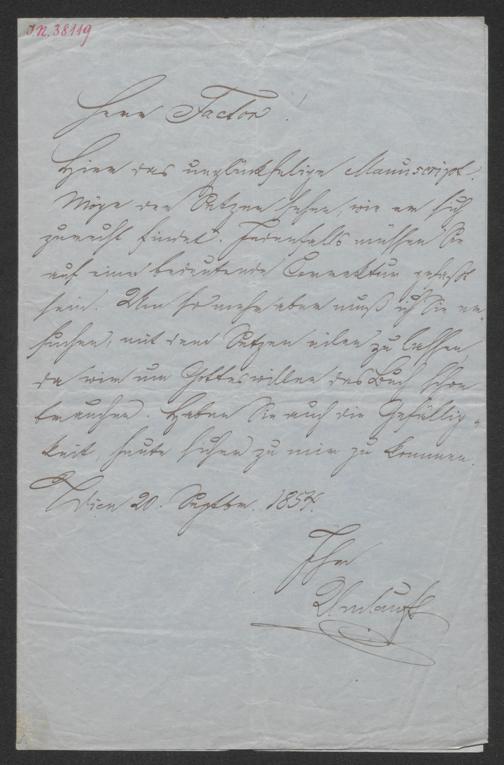 I.N. 38119
Herr Factor!
Hier das unglückselige Manuscript.
Möge der Setzer sehen, wie er sich
zurecht findet. Jedenfalls müssen Sie
auf eine bedeutende Correktur gefaßt
sein. Um so mehr aber muß ich Sie er-
suchen, mit dem Setzen eilen zu lassen,
da wir um Gotteswillen das Buch schon
brauchen. Haben Sie auch die Gefällig-
keit, heute sicher zu mir zu kommen.
Wien 20. Septbr. 1854.
Ihr
Umlauft